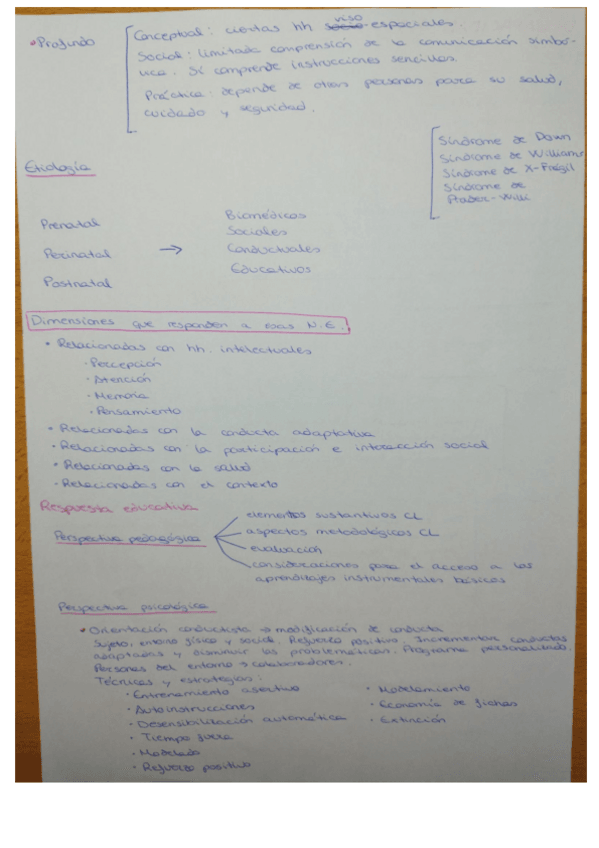 • Profundo
Conceptual: ciertas hh viso-espaciales.
Social: limitada comprensión de la comunicación simbó-
lica. Sí comprende instrucciones sencillas.
Práctica: depende de otras personas para su salud,
cuidado y seguridad.
Síndrome de Down
Síndrome de Williams
Síndrome de X-Frágil
Síndrome de
Prader-Willi
Etiología
Prenatal
Perinatal →
Postnatal
Biomédicos
Sociales
Conductuales
Educativos
Dimensiones que responden a esas N.E.
• Relacionadas con hh. intelectuales
· Percepción
· Atención
· Memoria
· Pensamiento
• Relacionadas con la conducta adaptativa
• Relacionadas con la participación e interacción social
• Relacionadas con la salud
• Relacionadas con el contexto
Respuesta educativa
Perspectiva pedagógica
elementos sustantivos CL
aspectos metodológicos CL
evaluación
consideraciones para el acceso a los
aprendizajes instrumentales básicos
Perspectiva psicológica
• Orientación conductista → modificación de conducta
Sujeto, entorno físico y social. Refuerzo positivo. Incrementar conductas
adaptadas y disminuir las problemáticas. Programa personalizado.
Personas del entorno → colaboradores.
Técnicas y estrategias:
· Entrenamiento asertivo
· Autoinstrucciones
· Desensibilización automática
· Tiempo fuera
· Modelado
· Refuerzo positivo
· Modelamiento
· Economía de fichas
· Extinción